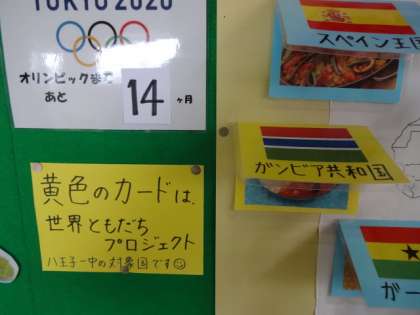 TOKYO 2020
オリンピックまで
あと 14 ヶ月
黄色のカードは、
世界ともだち
プロジェクト
八王子一中の対象国です☺
スペイン王国
ガンビア共和国
ガー